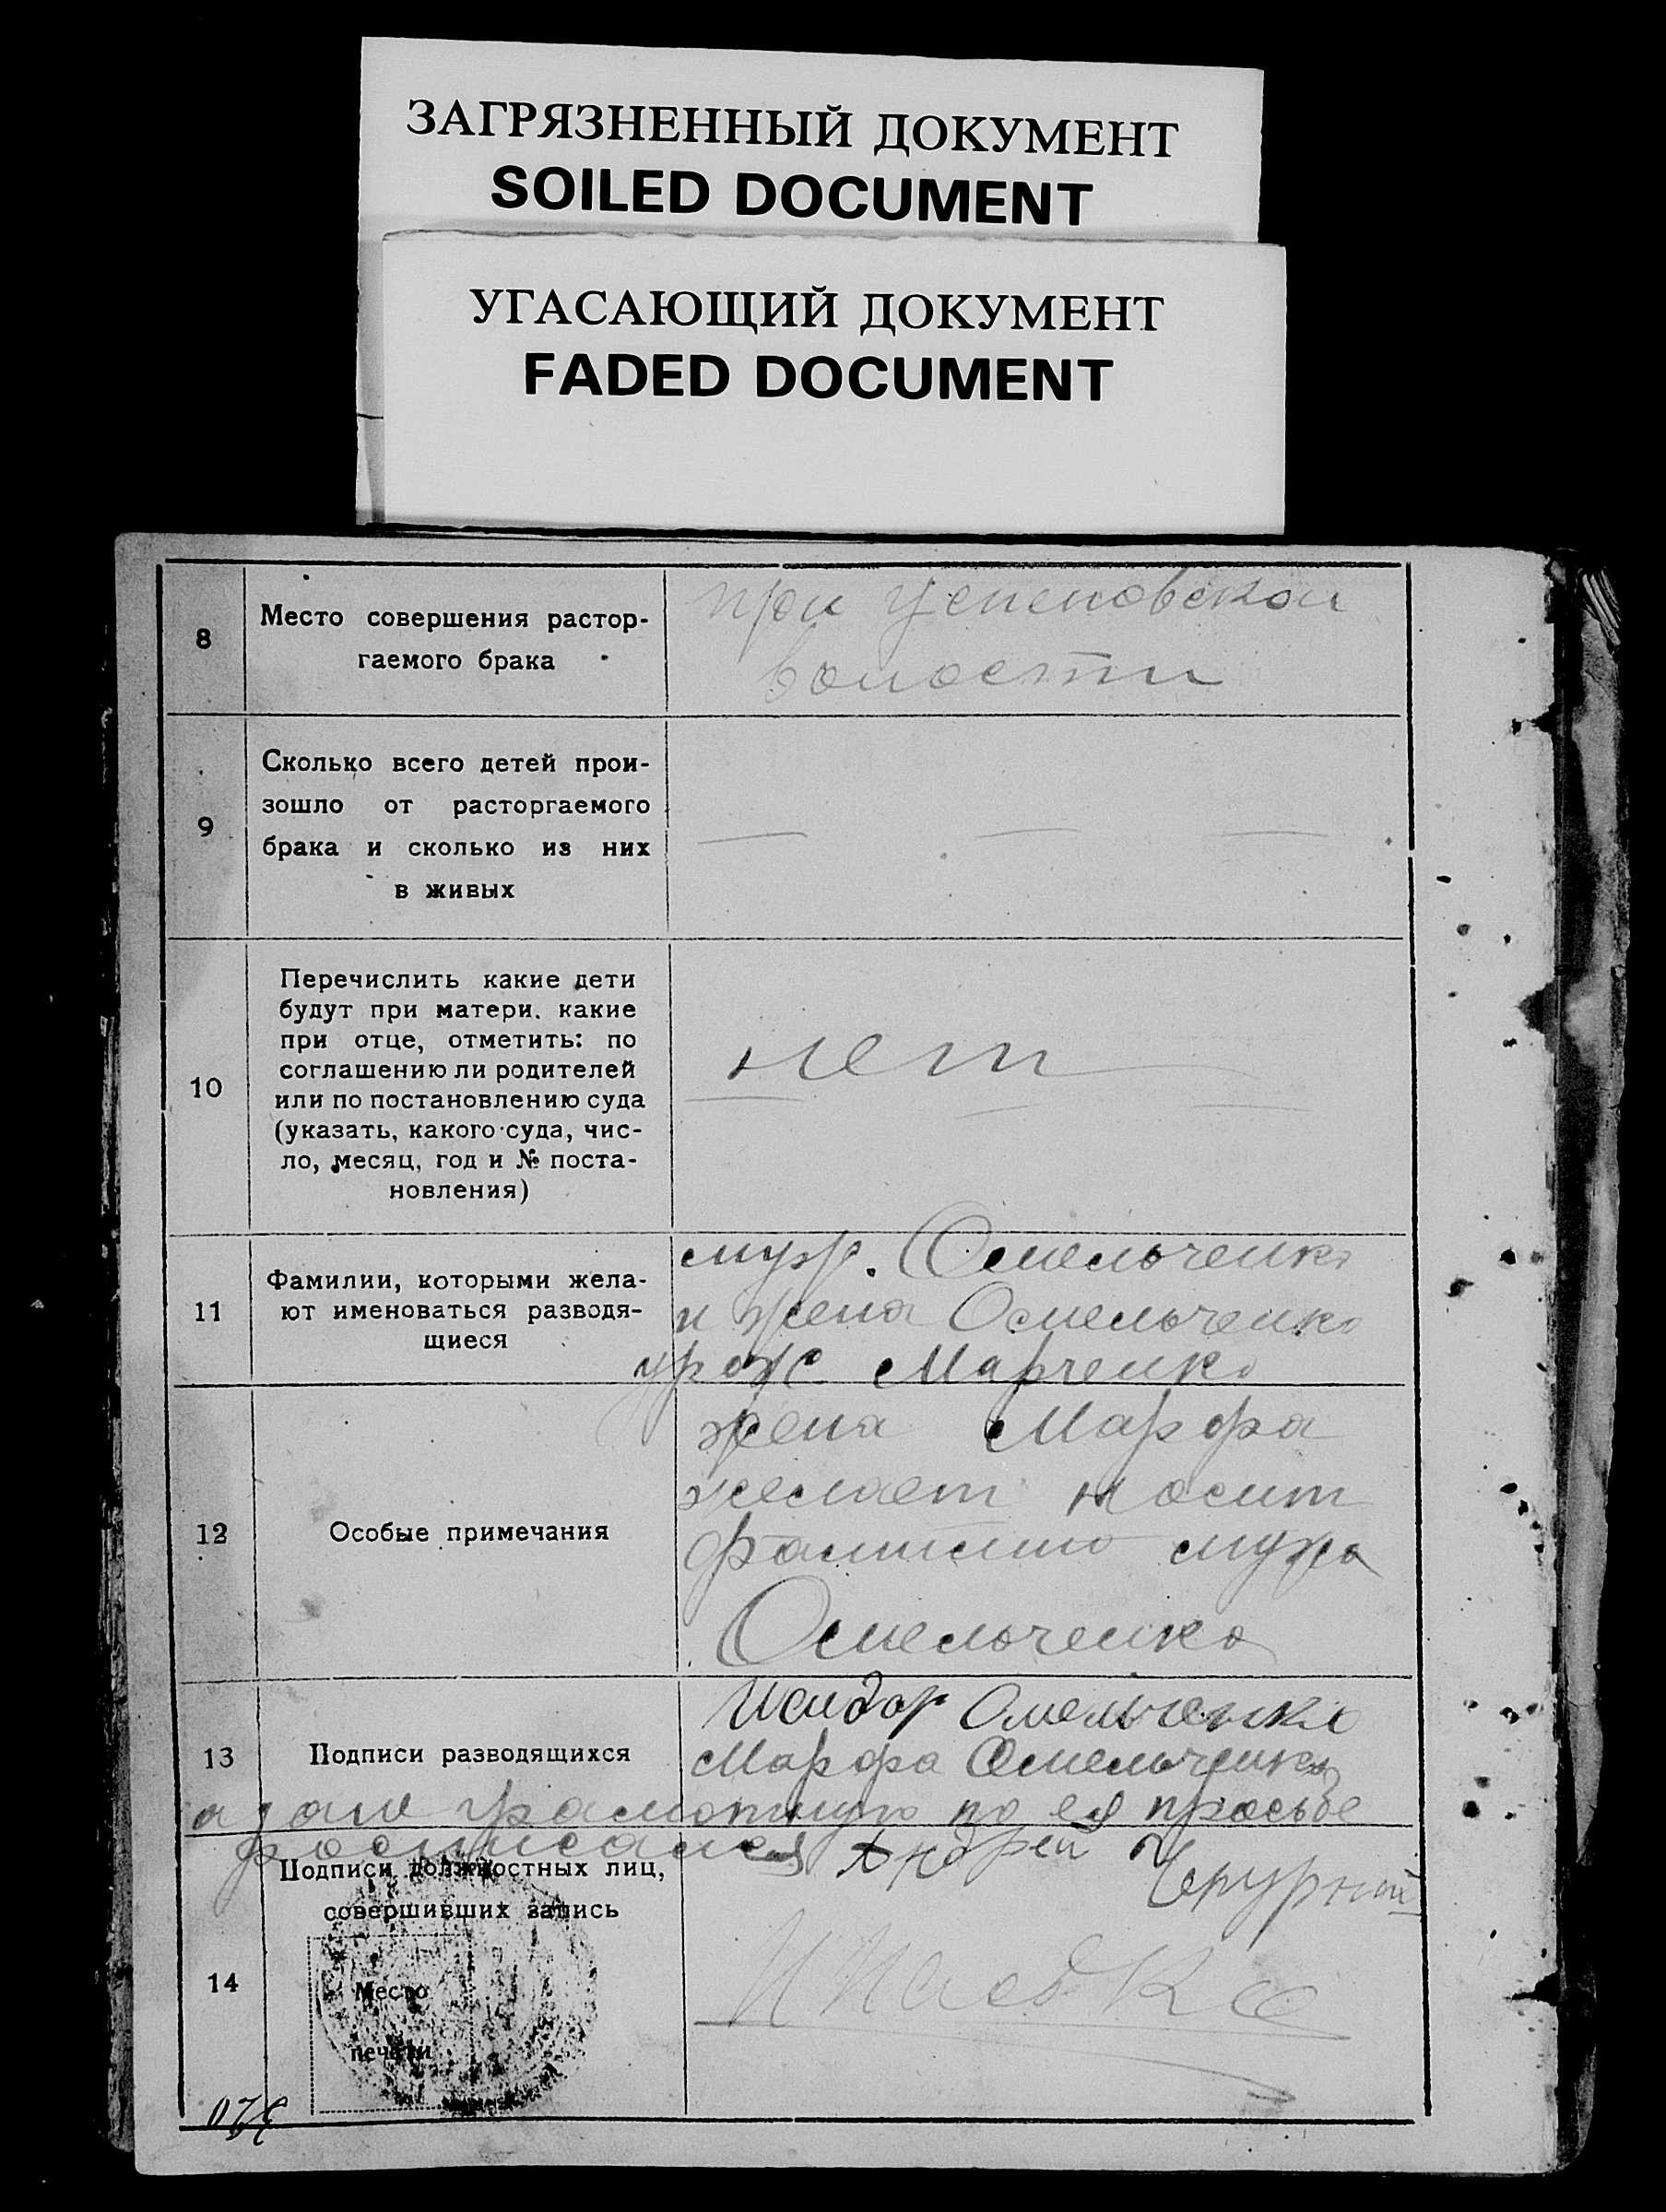 ЗАГРЯЗНЕННЫЙ ДОКУМЕНТ
SOILED DOCUMENT
УГАСАЮЩИЙ ДОКУМЕНТ
FADED DOCUMENT
8
Место совершения растор-
гаемого брака
при
волости
9
Сколько всего детей прои-
зошло от расторгаемого
брака и сколько из них
в живых
— — —
10
Перечислить какие дети
будут при матери, какие
при отце, отметить: по
соглашению ли родителей
или по постановлению суда
(указать, какого суда, чис-
ло, месяц, год и № поста-
новления)
нет
11
Фамилии, которыми жела-
ют именоваться разводя-
щиеся
муж. Омельченко
и жена Омельченко
урож Марченко
12
Особые примечания
жена Марфа
желает носит
фамилию мужа
Омельченко
13
Подписи разводящихся
Исидор Омельченко
Марфа Омельченко
а за не грамотную по ея просьбе
росписался Андрей
14
Подписи должностных лиц,
совершивших запись
Место
печати
320